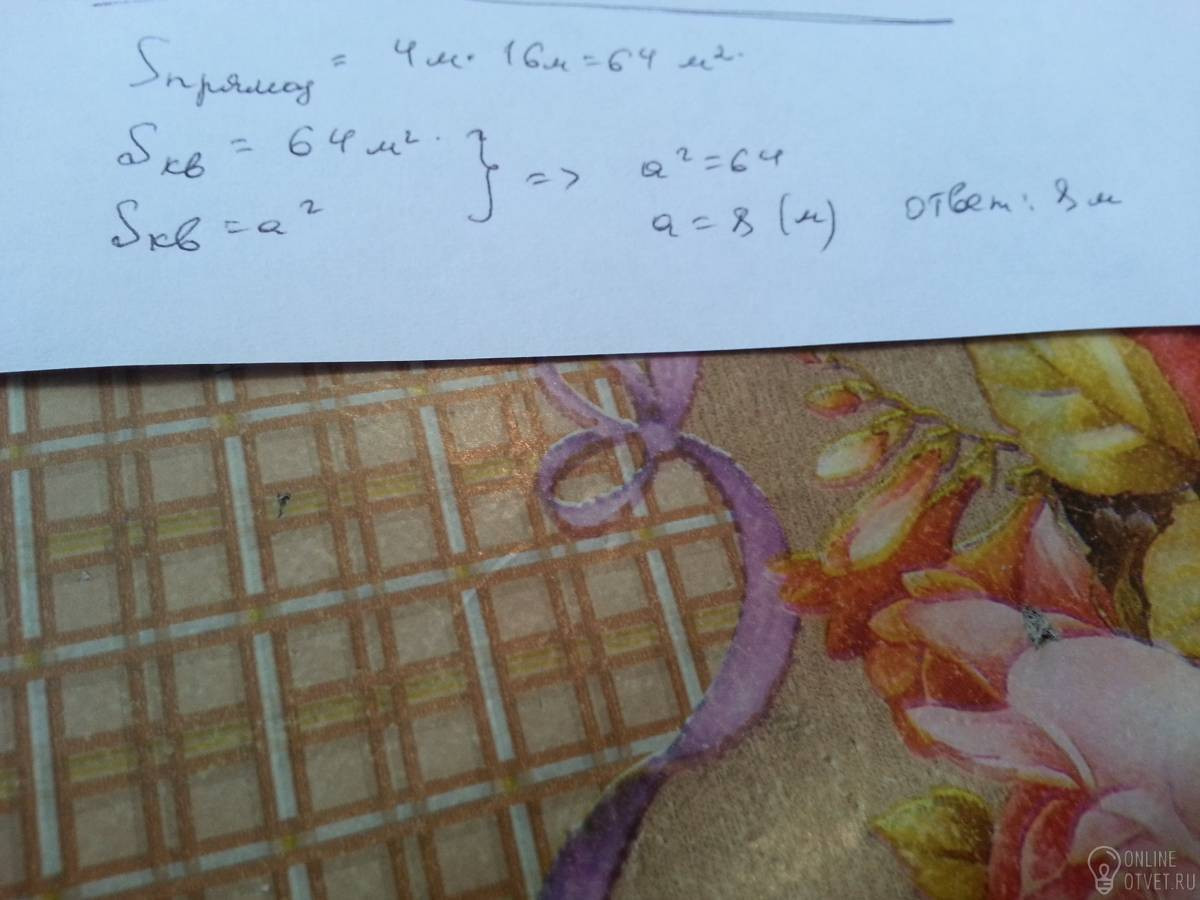 Sпрямоуг = 4м · 16м = 64 м².
Sкв = 64 м². } => a² = 64
Sкв = a² a = 8 (м) ответ: 8 м
ONLINE
OTVET.RU